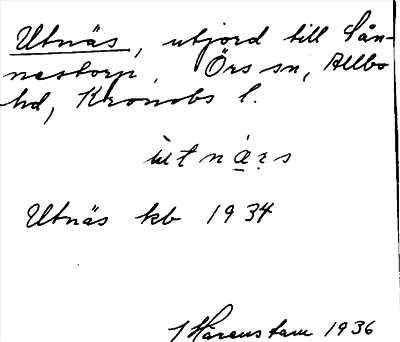 Utnäs, utjord till Sån-
nastorp, Örs sn, Allbo
hd, Kronobs l.
ùtnạ́ː s
Utnäs kb 1934
I Hårenstam 1936